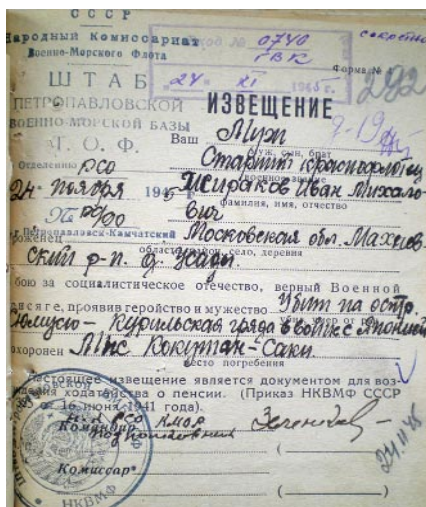 СССР
Народный Комиссариат
Военно-Морского Флота
ШТАБ
ПЕТРОПАВЛОВСКОЙ
ВОЕННО-МОРСКОЙ БАЗЫ
Т. О. Ф.
Отделению РСО
24 ноября 1945 г.
Петропавловск-Камчатский
Вход № 0740
ГВК
24 XI 1945 г.
секретно
Форма №
292
ИЗВЕЩЕНИЕ
Ваш Муж
муж, сын, брат
Старший краснофлотец
военное звание
Жираков Иван Михайло-
вич
фамилия, имя, отчество
уроженец Московская обл.
область, район, село, деревня
ский р-н. д.
бою за социалистическое отечество, верный Военной
присяге, проявив геройство и мужество Убит на остр.
Курильская гряда в войне с Японией
похоронен Мыс Кокутан-Саки
место погребения
Настоящее извещение является документом для воз-
буждения ходатайства о пенсии. (Приказ НКВМФ СССР
16 июня 1941 года).
Командир
подполковник
Комиссар
НКВМФ
24.11.45